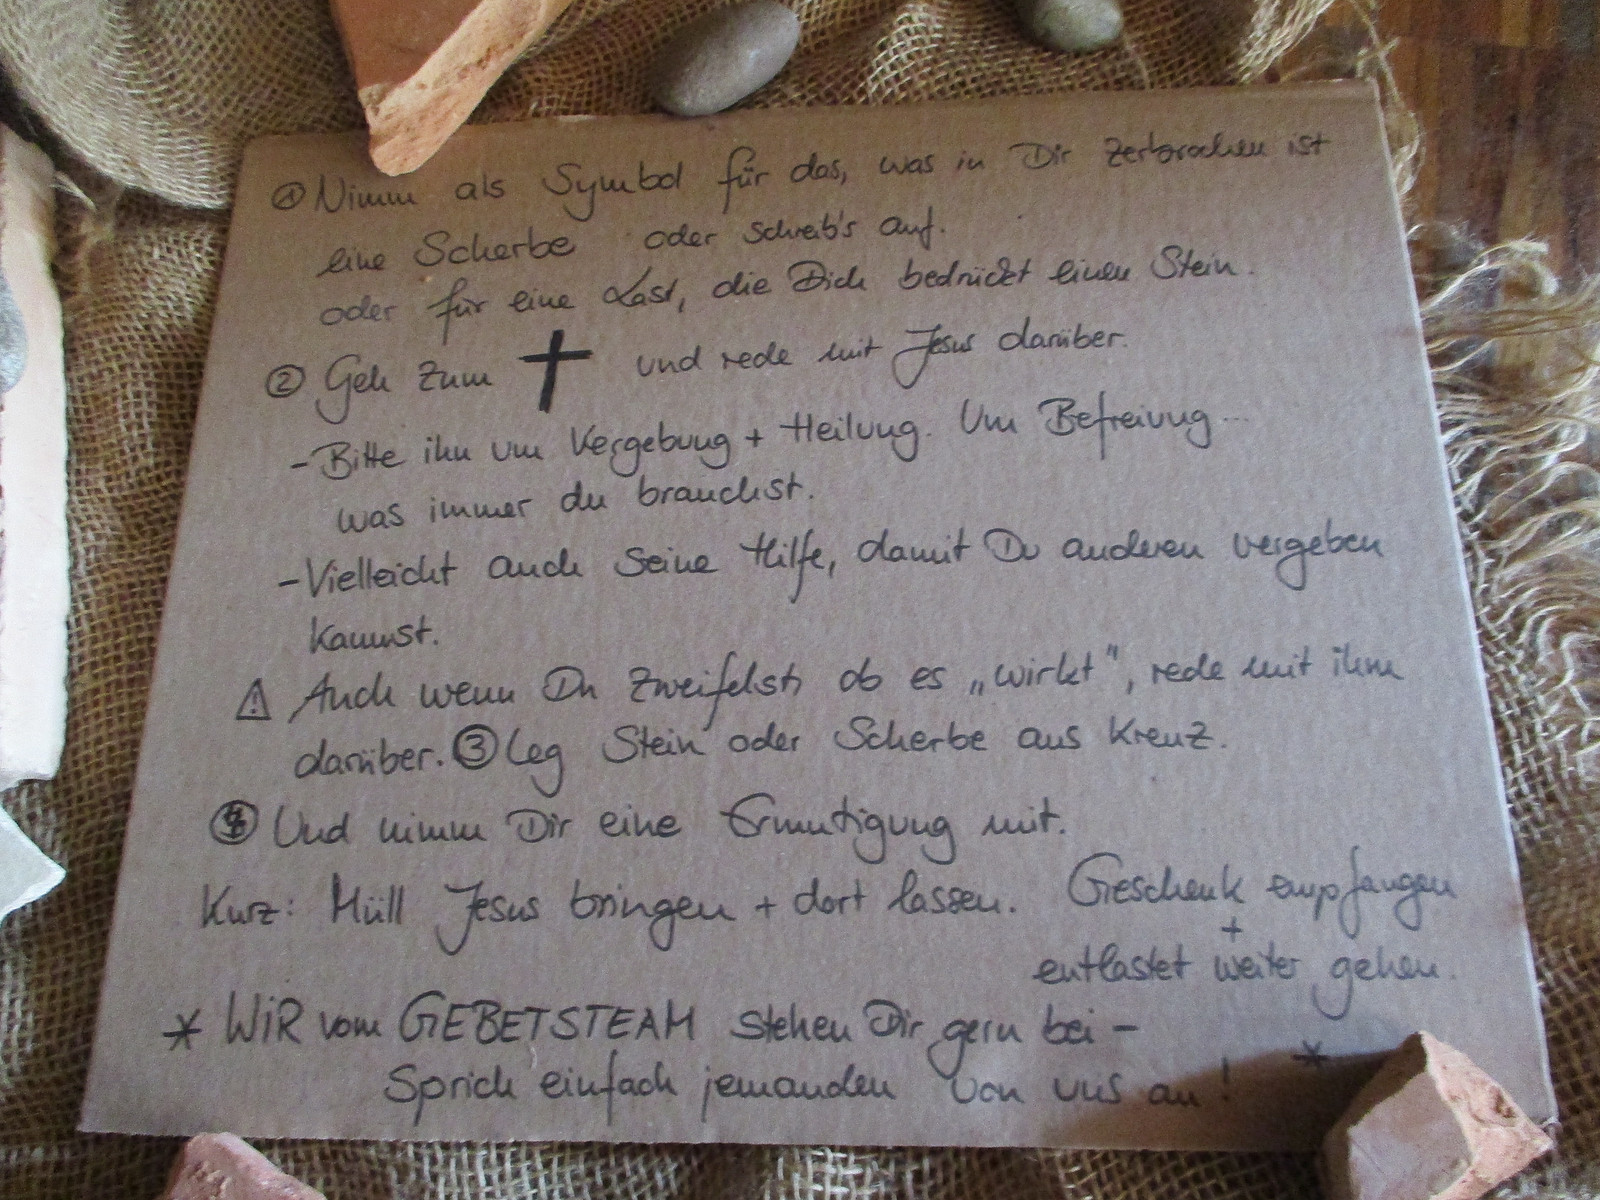 ① Nimm als Symbol für das, was in Dir zerbrochen ist
eine Scherbe oder schreib's auf.
oder für eine Last, die Dich bedrückt einen Stein.
② Geh zum ✝ und rede mit Jesus darüber.
- Bitte ihn um Vergebung + Heilung. Um Befreiung...
was immer du brauchst.
- Vielleicht auch seine Hilfe, damit Du anderen vergeben
kannst.
⚠ Auch wenn Du zweifelst, ob es „wirkt", rede mit ihm
darüber. ③ Leg Stein oder Scherbe ans Kreuz.
④ Und nimm Dir eine Ermutigung mit.
Kurz: Müll Jesus bringen + dort lassen. Geschenk empfangen
+
entlastet weiter gehen.
* WiR vom GEBETSTEAM stehen Dir gern bei -
Sprich einfach jemanden von uns an! *